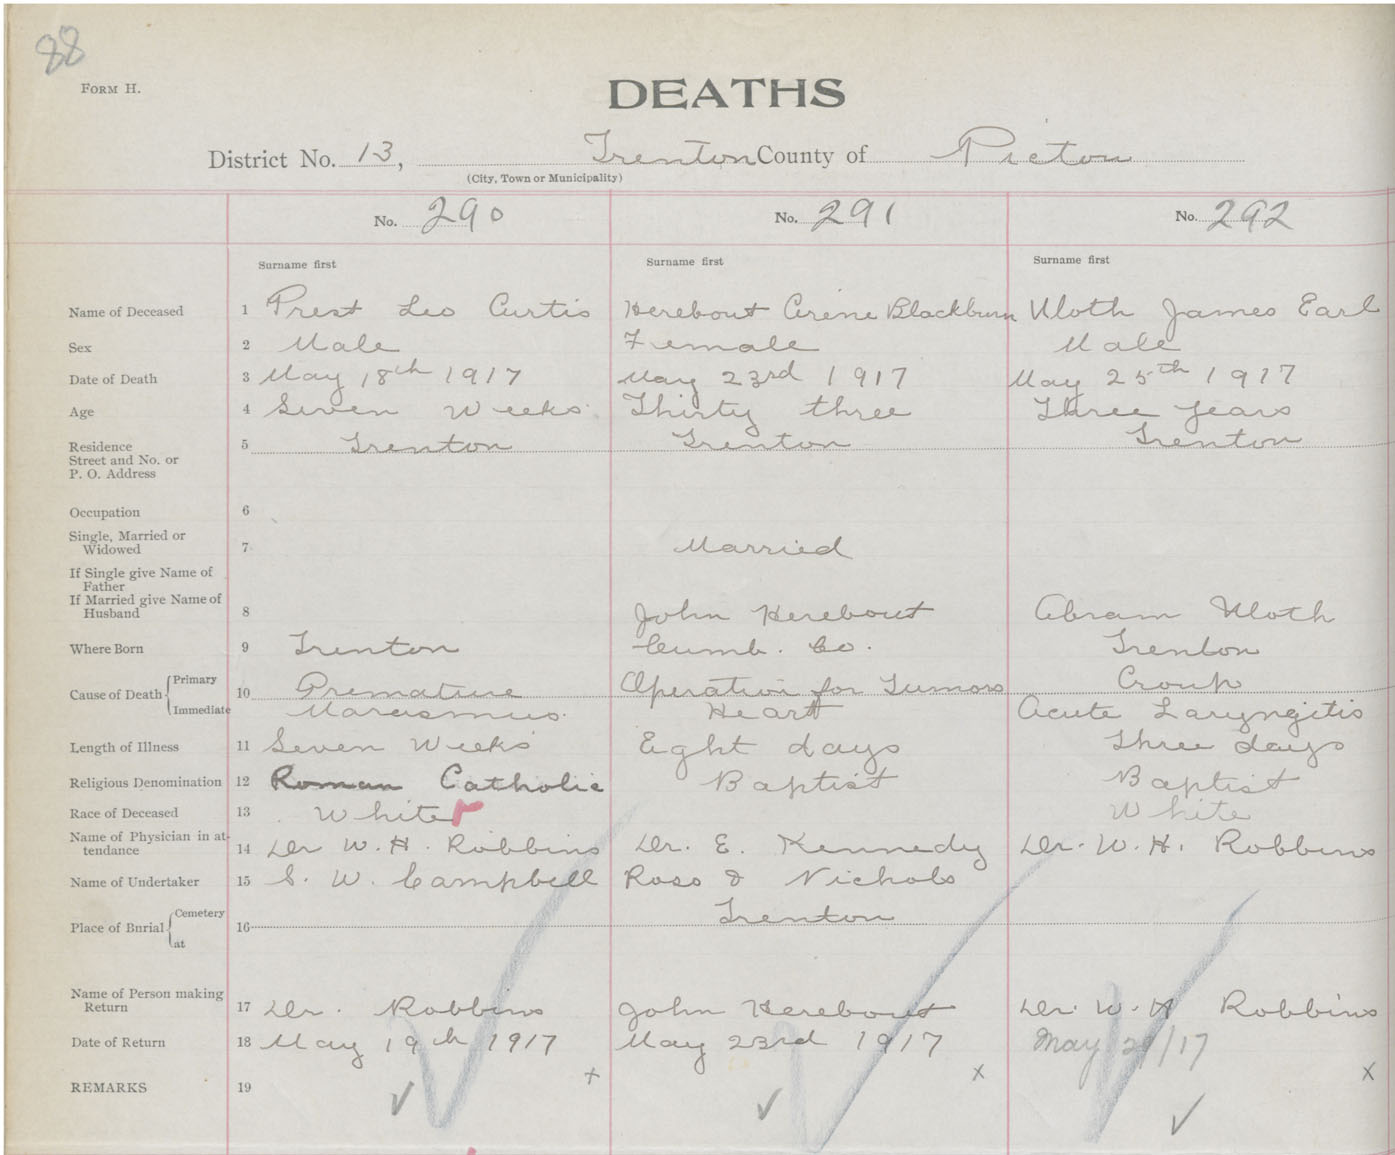 88
FORM H.
DEATHS
District No. 13, Trenton County of Pictou
(City, Town or Municipality)
No. 290 No. 291 No. 292
Surname first Surname first Surname first
Name of Deceased 1 Prest Leo Curtis Herebout Cirene Blackburn Uloth James Earl
Sex 2 Male Female Male
Date of Death 3 May 18th 1917 May 23rd 1917 May 25th 1917
Age 4 Seven Weeks Thirty three Three years
Residence 5 Trenton Trenton Trenton
Street and No. or
P. O. Address
Occupation 6
Single, Married or
Widowed 7 Married
If Single give Name of
Father
If Married give Name of
Husband 8 John Herebout Abram Uloth
Where Born 9 Trenton Cumb. Co. Trenton
Cause of Death { Primary 10 Premature Operation for Tumors Croup
Immediate Marasmus. Heart Acute Laryngitis
Length of Illness 11 Seven Weeks Eight days Three days
Religious Denomination 12 Roman Catholic Baptist Baptist
Race of Deceased 13 White White
Name of Physician in at-
tendance 14 Dr W. H. Robbins Dr. E. Kennedy Dr. W. H. Robbins
Name of Undertaker 15 S. W. Campbell Ross & Nichols
Place of Burial { Cemetery 16 Trenton
at
Name of Person making
Return 17 Dr. Robbins John Herebout Dr. W. H Robbins
Date of Return 18 May 19th 1917 May 23rd 1917 May /17
REMARKS 19 x x x